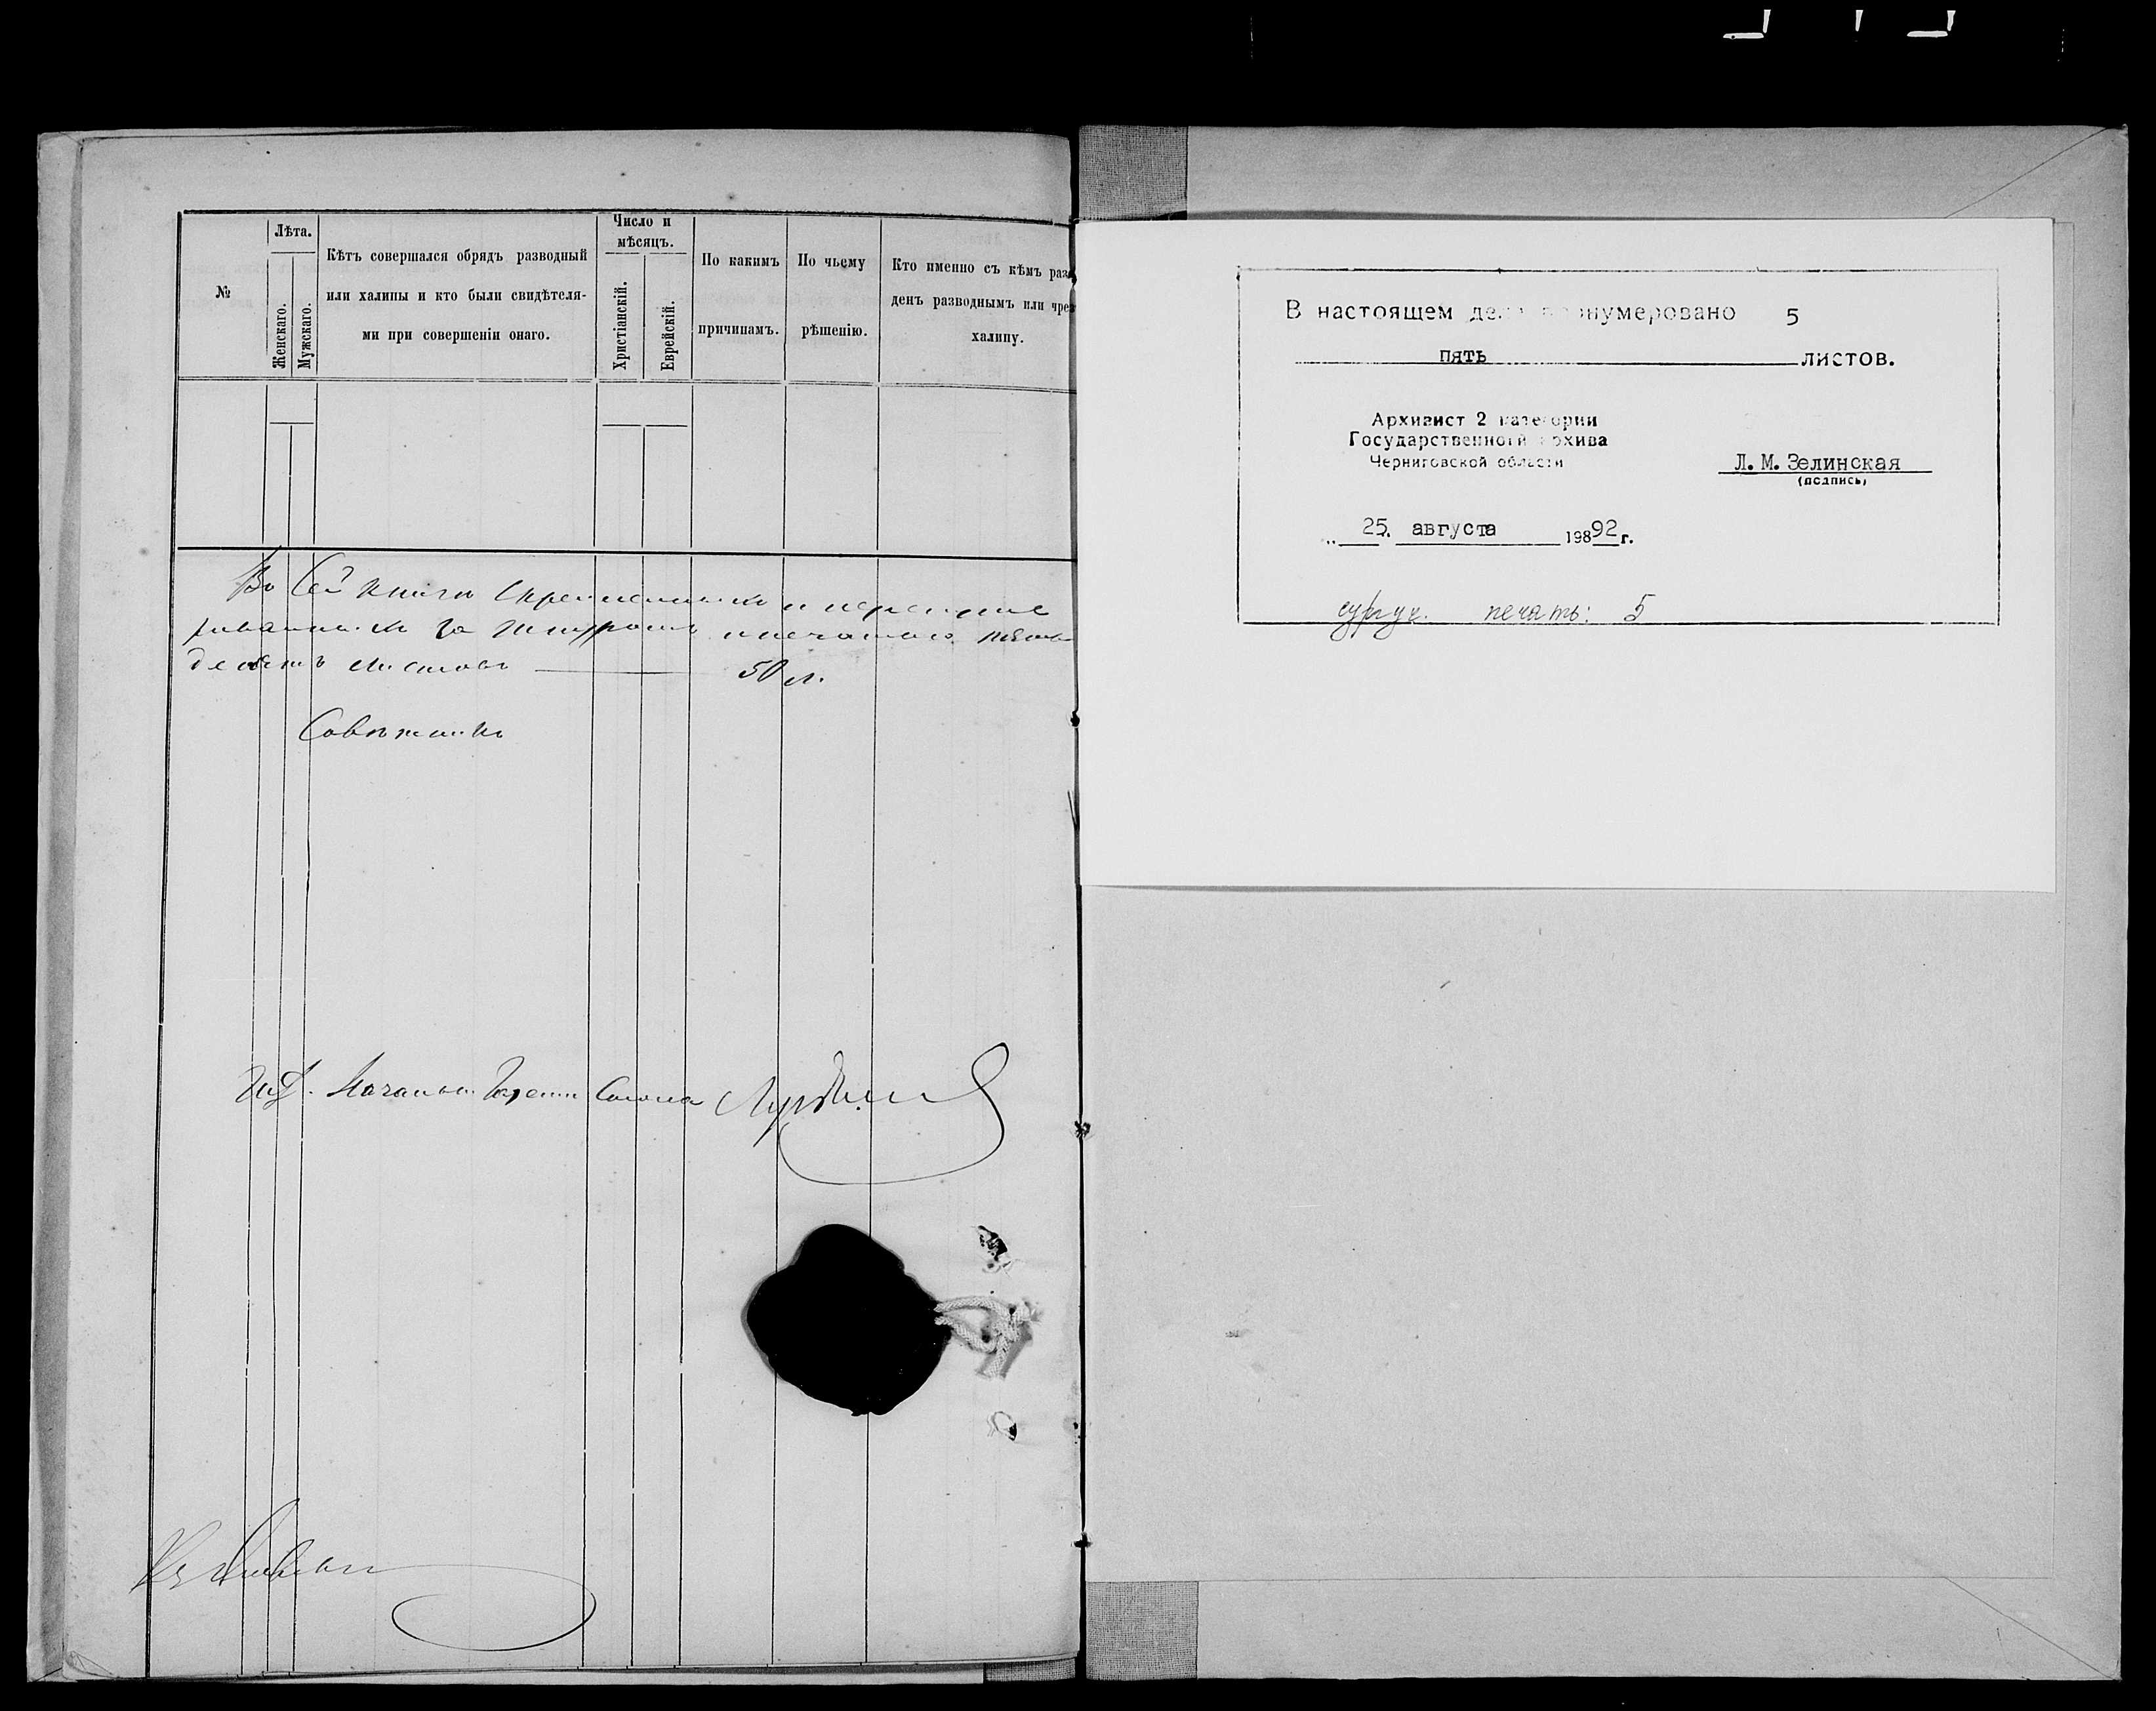 №
Лѣта.
Женскаго.
Мужскаго.
Кѣтъ совершался обрядъ разводный
или халицы и кто были свидѣтеля-
ми при совершеніи онаго.
Число и
мѣсяцъ.
Христіанскій.
Еврейскій.
По какимъ
причинамъ.
По чьему
рѣшенію.
Кто именно съ кѣмъ раз
денъ разводнымъ или чрез
халицу.
Въ сей книгѣ
за шнуромъ
десятъ листовъ 50 л.
Совѣтникъ
В настоящем деле пронумеровано 5
пять листов.
Архивист 2 категории
Государственного архива
Черниговской области
Л. М. Зелинская
(подпись)
„ 25. августа 19892 г.
сургуч. печать: 5